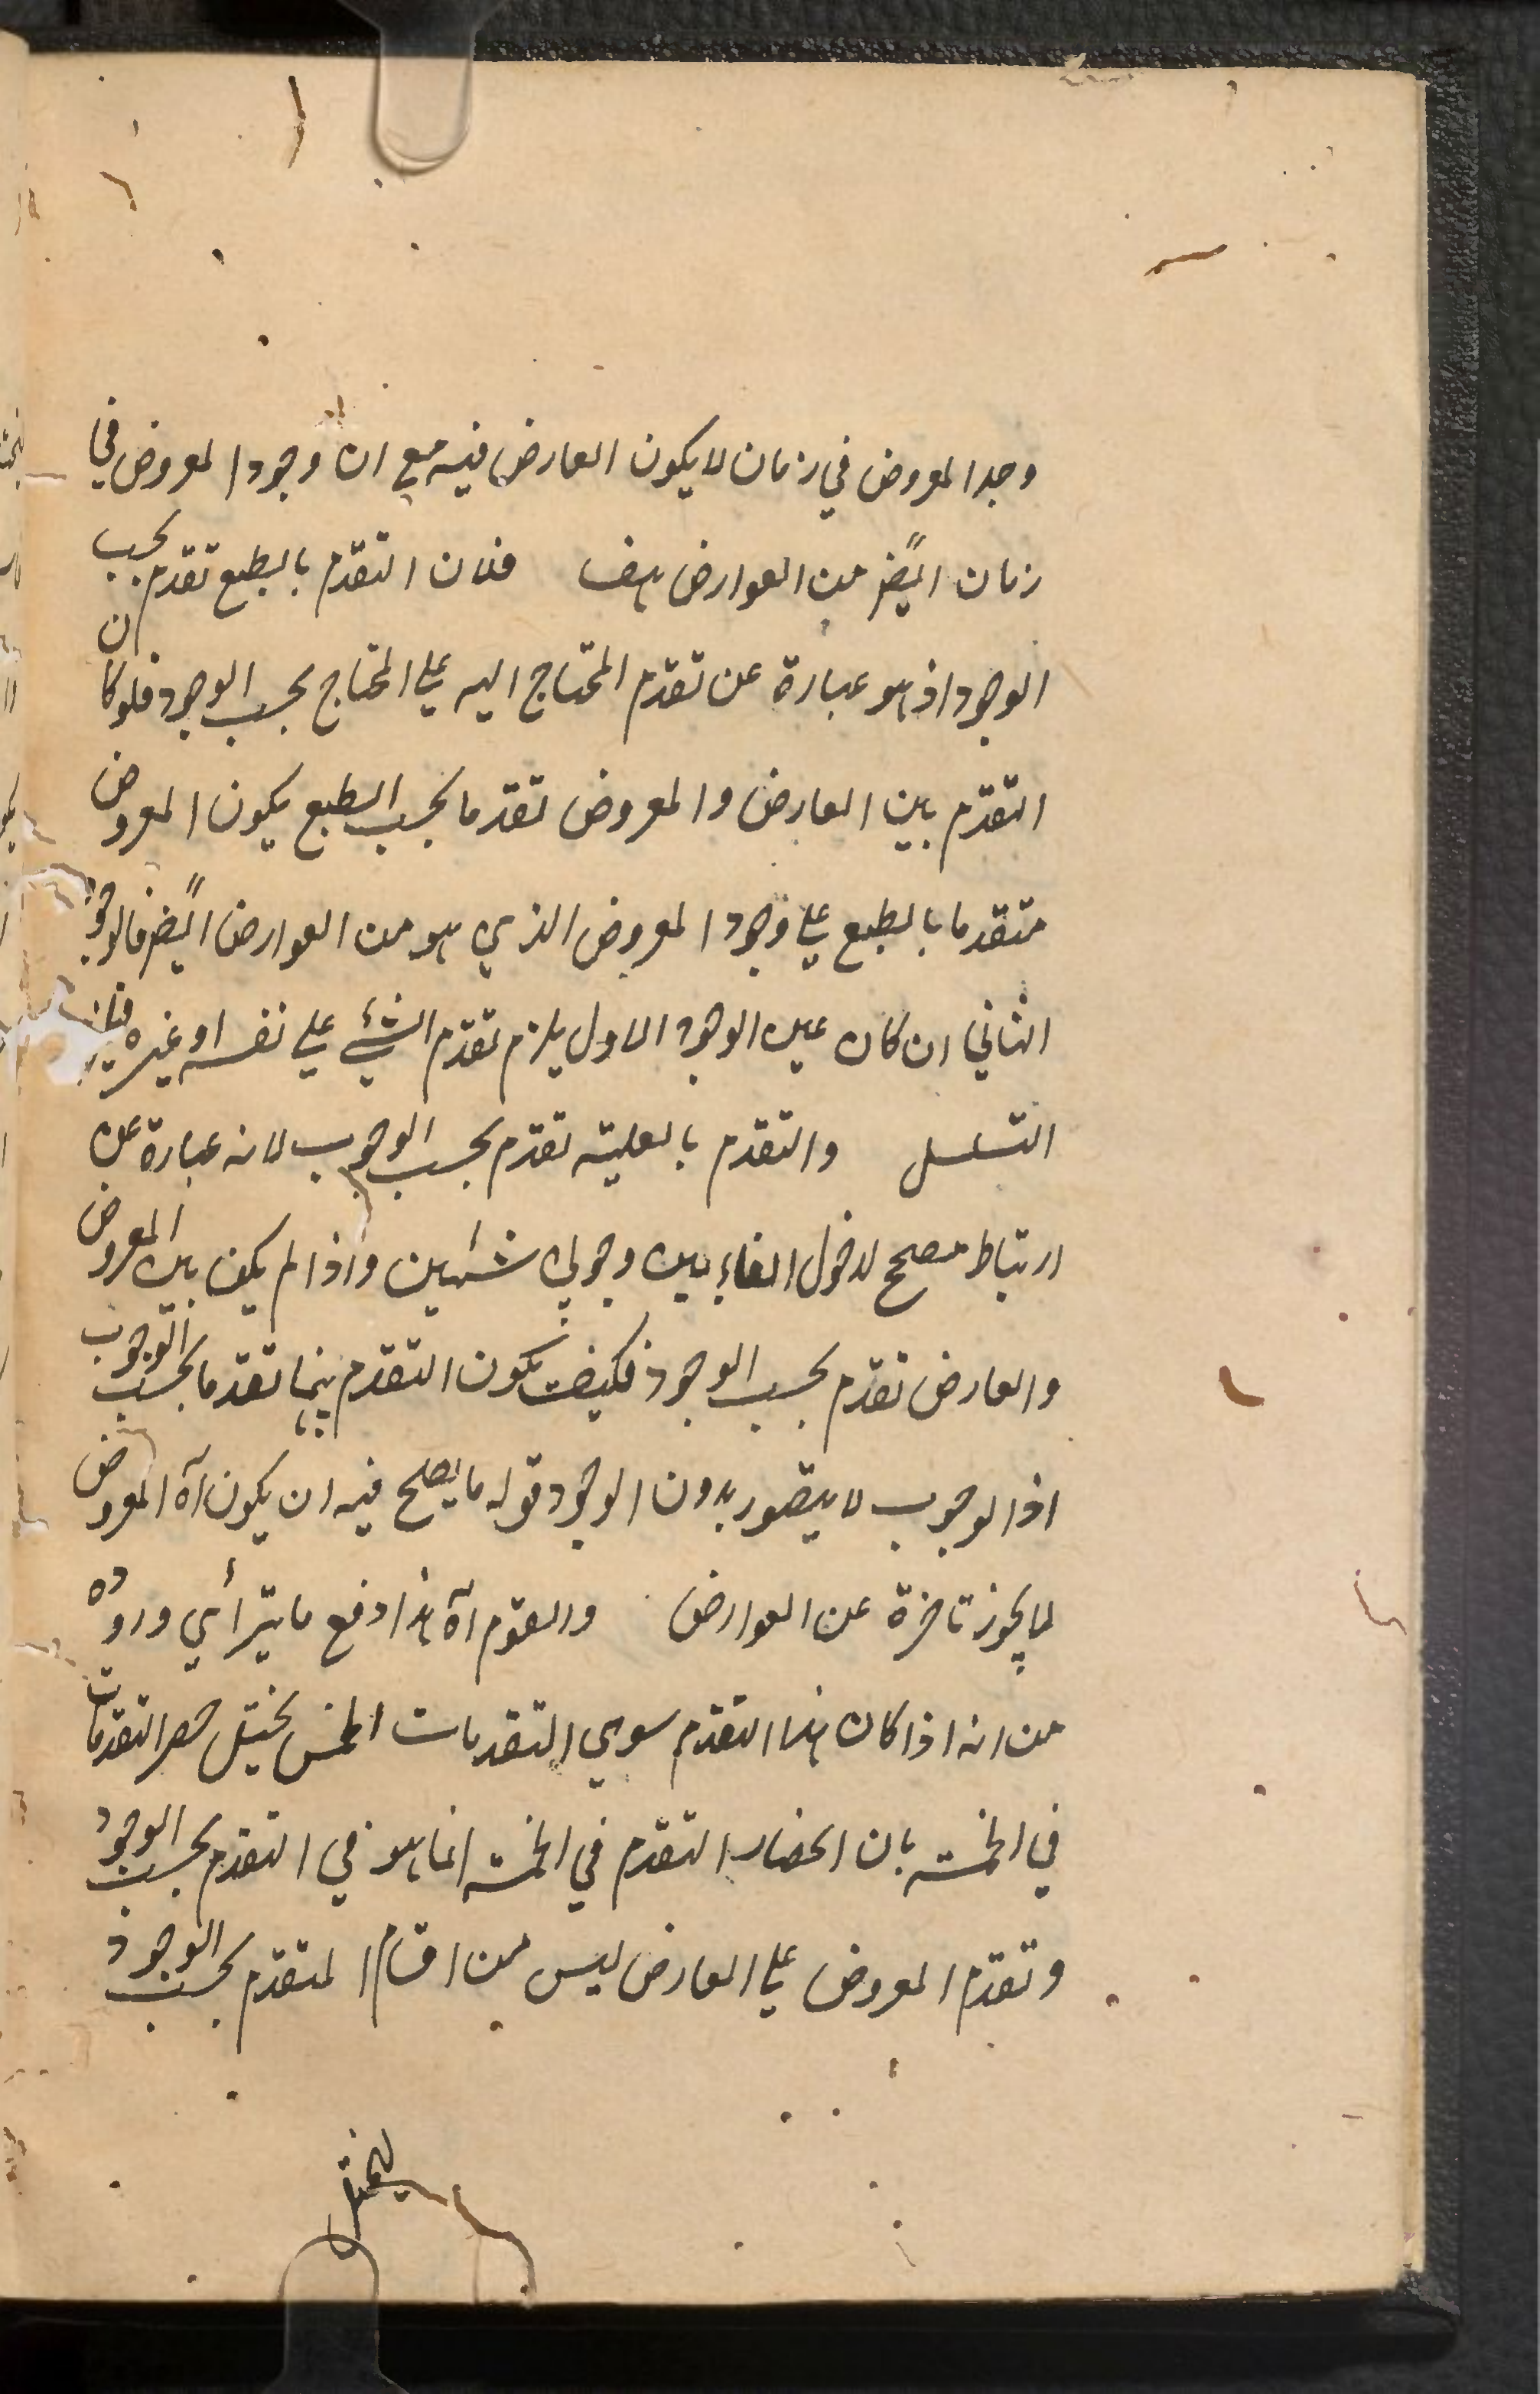 وجد المعروض في زمان لا يكون العارض فيه مع ان وجود المعروض في
زمان ايضً من العوارض هف فلان التقدم بالطبع تقدم بحسب
الوجود اذ هو عبارة عن تقدم المحتاج اليه على المحتاج بحسب الوجود فلو كان
التقدم بين العارض والمعروض تقدما بحسب الطبع يكون المعروض
متقدما بالطبع على وجود المعروض الذي هو من العوارض ايضً فالوجود
الثاني ان كان عين الوجود الاول يلزم تقدم الشئ على نفسه او غيره
التسلسل والتقدم بالعلية تقدم بحسب الوجوب لانه عبارة عن
ارتباط مصحح لدخول الفاء بين وجوبي شئين واذا لم يكن بين المعروض
والعارض تقدم بحسب الوجود فكيف يكون التقدم بينهما تقدما بحسب الوجوب
اذ الوجوب لا يتصور بدون الوجود قوله ما يصلح فيه ان يكون آه المعروض
لما يجوز تاخرة عن العوارض والقوم آه هذا دفع ما يترأي وروده
من انه اذا كان هذا التقدم سوى التقدمات الخمس يختل حصر التقدمات
في الخمسة بان انحصار التقدم في الخمسة انما هو في التقدم بحسب الوجود
وتقدم المعروض على العارض ليس من اقسام المتقدم بحسب الوجود